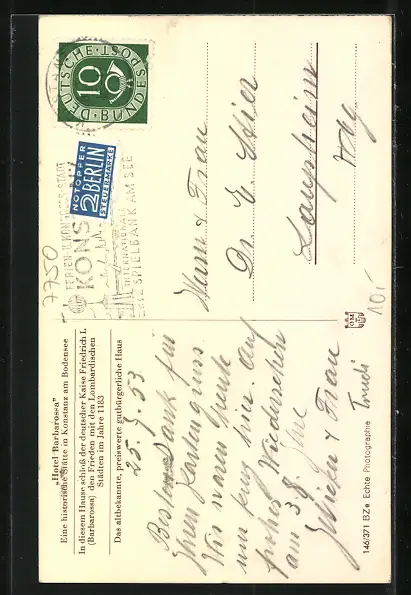 „Hotel Barbarossa"
Eine historische Stätte in Konstanz am Bodensee
In diesem Hause schloß der deutscher Kaise Friedrich I.
(Barbarossa) den Frieden mit den Lombardischen
Städten im Jahre 1183
Das altbekannte, preiswerte gutbürgerliche Haus
25.5.53
Besten Dank für
Ihren Kartengruss
Wir waren heute
nur kurz hier auf
frohes Wiedersehen
am 3.
& Frau
Trudi
146/371 BZ Echte Photographie
7750
FERIEN- U. KONGRESS-STADT
KONSTANZ
INTERNATIONALE
SPIELBANK AM SEE
DEUTSCHE BUNDESPOST
10
NOTOPFER
2 BERLIN
STEUERMARKE
Herrn & Frau
Dr. E.
Laupheim
Wbg
10,-